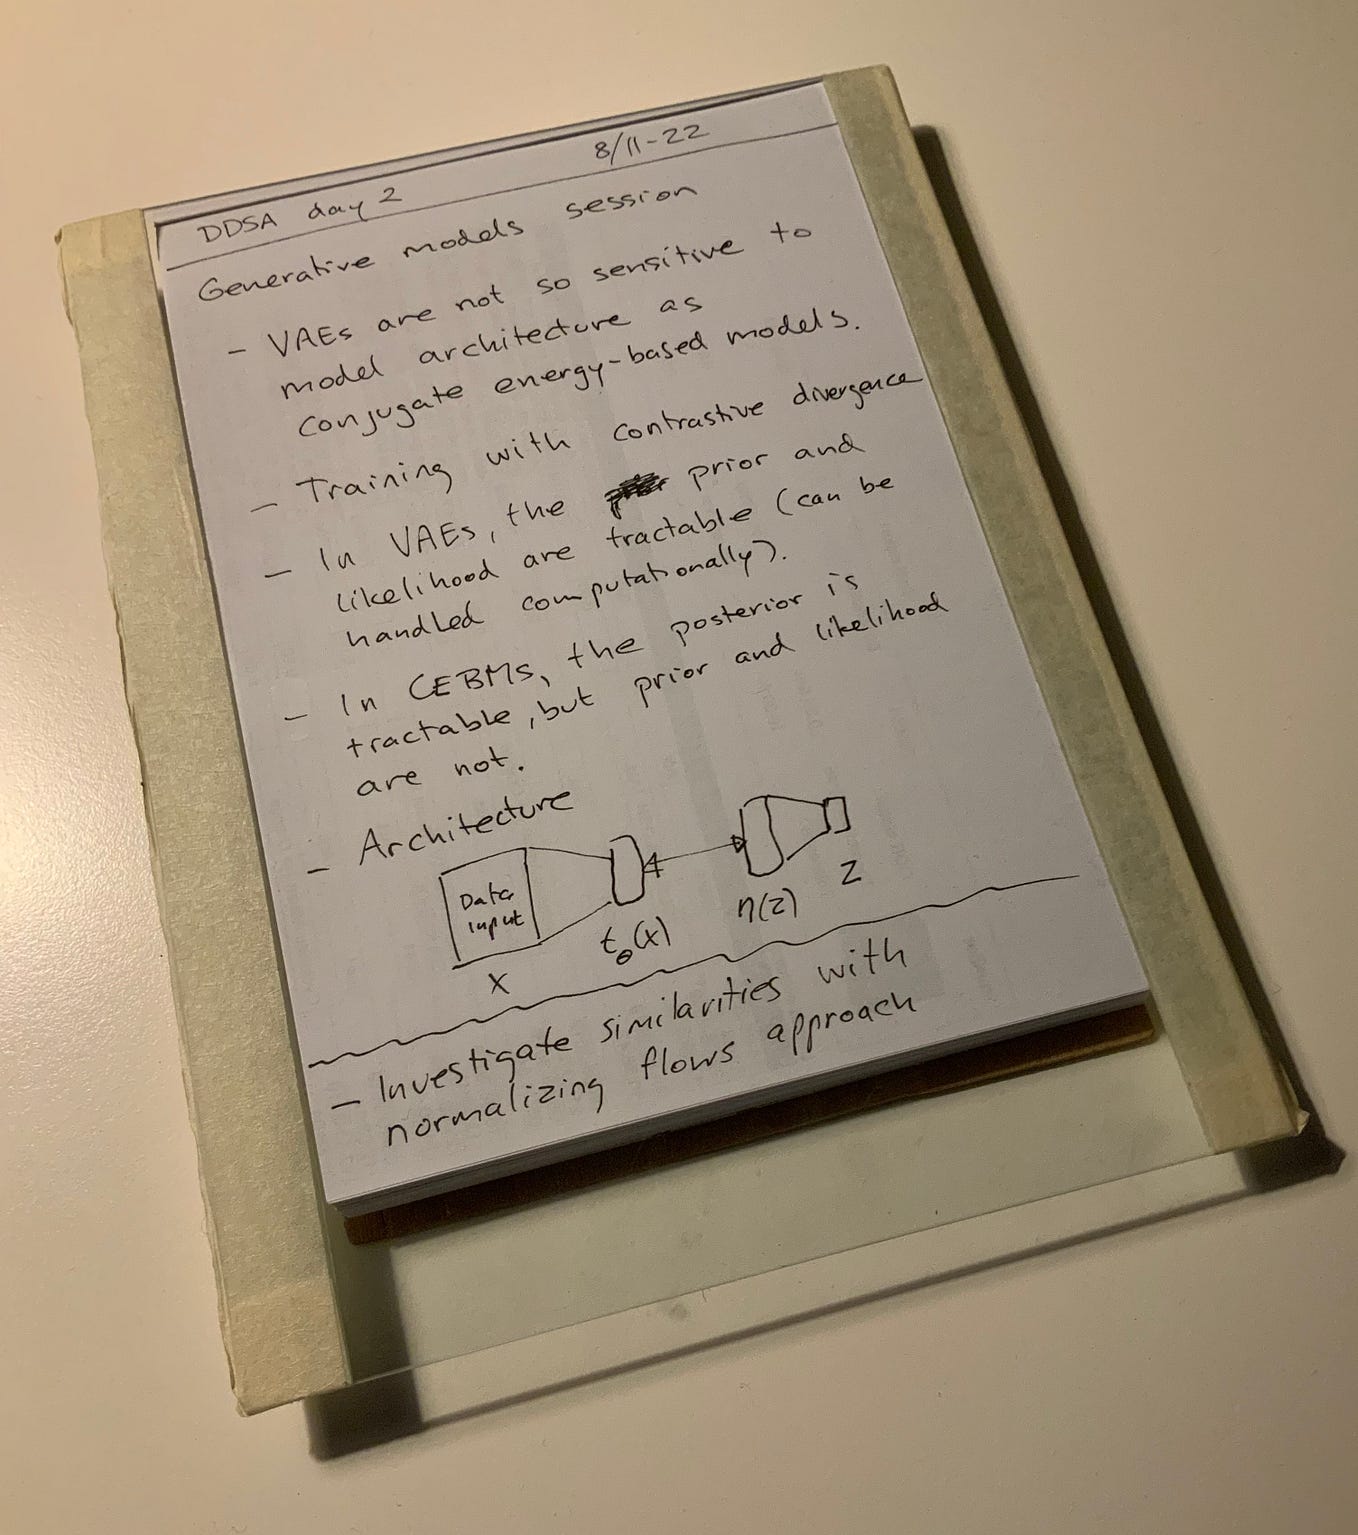 DDSA day 2 8/11-22
Generative models session
- VAEs are not so sensitive to
model architecture as
conjugate energy-based models.
- Training with contrastive divergence
- In VAEs, the prior and
likelihood are tractable (can be
handled computationally).
- In CEBMs, the posterior is
tractable, but prior and likelihood
are not.
- Architecture
Data
input
x t_θ(x) η(z) z
- Investigate similarities with
normalizing flows approach